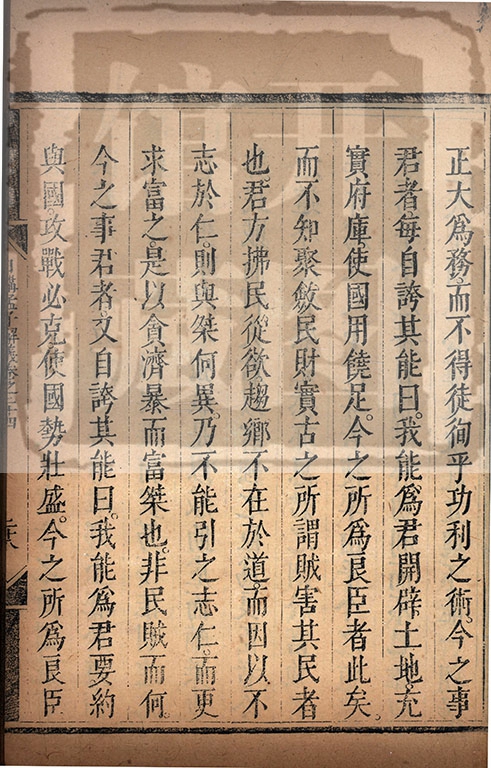 正大爲務。而不得徒徇乎功利之術。今之事
君者每自誇其能曰。我能爲君開辟土地。充
實府庫。使國用饒足。今之所爲良臣者此矣。
而不知聚斂民財實古之所謂賊害其民者
也。君方拂民從欲趨鄉不在於道。而因以不
志於仁。則與桀何異。乃不能引之志仁。而更
求富之。是以貪濟暴而富桀也。非民賊而何。
今之事君者。又自誇其能曰。我能爲君要約
與國。攻戰必克。使國勢壯盛。今之所爲良臣
孟子
卷之二十四
二十八